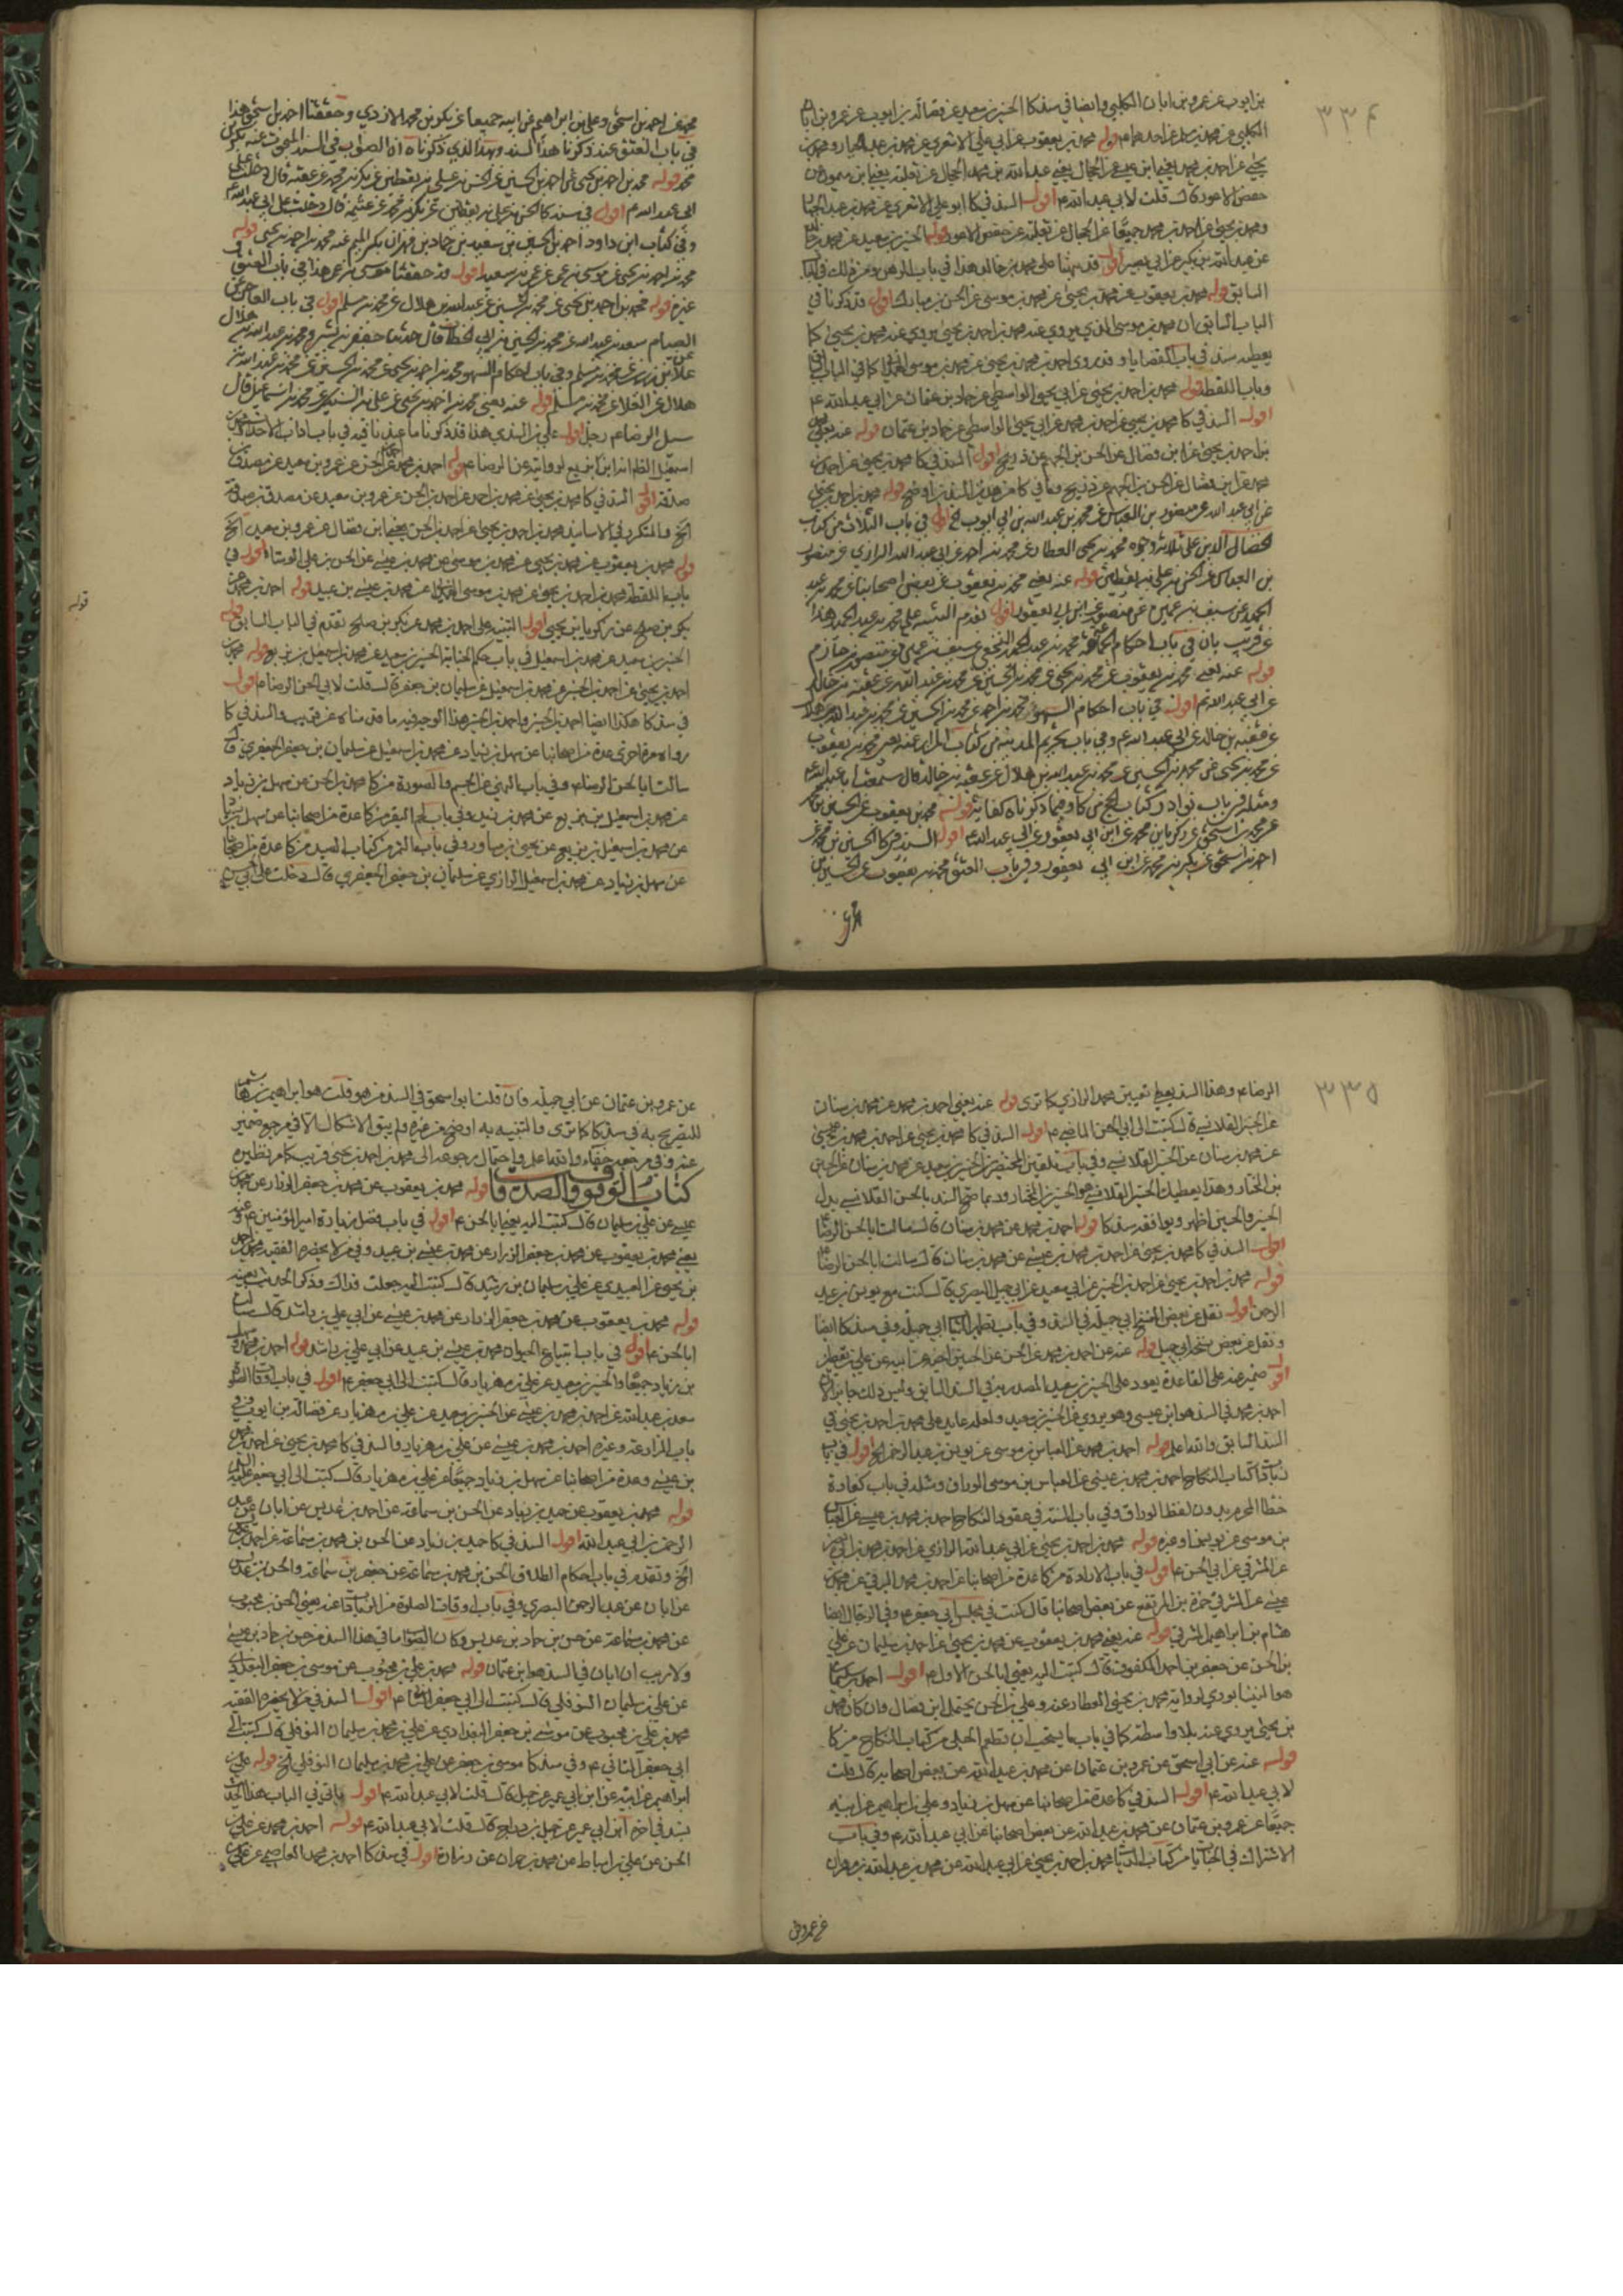 ٣٣٤
بن ايوب عن عمرو بن ابان الكلبي وايضا في سند كا الحسين بن سعيد عن فضالة بن ايوب عن عمرو بن ابان
الكلبي عن محمد بن مسلم عن احدهما ع قوله محمد بن يعقوب عن ابي علي الاشعري عن محمد بن عبد الجبار ومحمد بن
يحيى عن احمد بن محمد يعني ابن عيسى عن الحجال يعني عبد الله بن محمد الحجال عن ثعلبة يعني ابن ميمون عن
حفص الاعور قال قلت لابي عبد الله ع اقول السند في كا ابو علي الاشعري عن محمد بن عبد الجبار
ومحمد بن يحيى عن احمد بن محمد جميعا عن الحجال عن ثعلبة عن حفص الاعور قوله الحسين بن سعيد عن محمد بن خالد
عن عبد الله بن بكير عن ابي بصير اقول قد نبهنا على محمد بن خالد هذا في باب الرهن وعن ذلك في الباب
السابق قوله محمد بن يعقوب عن محمد بن يحيى عن محمد بن موسى عن الحسن بن مبارك اقول قد ذكرنا في
الباب السابق ان محمد بن موسى الذي يروي عنه محمد بن احمد بن يحيى يروي عنه محمد بن يحيى كما
يعطيه سند في باب القضايا وقد روى احمد بن محمد بن يحيى عن محمد بن موسى الهمداني كما في الباب
وباب اللقطة قوله محمد بن احمد بن يحيى عن ابي يحيى الواسطي عن حماد بن عثمان عن ابي عبد الله ع
اقول السند في كا محمد بن يحيى عن احمد بن محمد عن ابي يحيى الواسطي عن حماد بن عثمان قوله عنه يعني محمد
بن احمد بن يحيى عن ابن فضال عن الحسن بن الجهم عن ذبيح اقول السند في كا محمد بن يحيى عن احمد بن
محمد عن ابن فضال عن الحسن بن الجهم عن ذبيح وما في كا من هذين السندين اوضح قوله محمد بن احمد بن يحيى
عن ابي عبد الله عن منصور بن العباس عن محمد بن عبد الله بن ابي ايوب الخ اقول في باب الثلاث من كتاب
الخصال الدين على ثلاثة وجوه محمد بن يحيى العطار عن محمد بن احمد عن ابي عبد الله الرازي عن منصور
بن العباس عن الحسن بن علي بن يقطين قوله عنه يعني محمد بن يعقوب عن بعض اصحابنا عن محمد بن عبد
الحميد عن سيف بن عميرة عن منصور عن ابن ابي يعفور اقول تقدم التنبيه على محمد بن عبد الحميد هذا
عن قريب بان في باب احكام الجماعة محمد بن عبد الحميد النخعي عن سيف بن عميرة عن منصور بن حازم
قوله عنه يعني محمد بن يعقوب عن محمد بن يحيى عن محمد بن الحسين عن محمد بن عبد الله عن عقبة بن خالد
عن ابي عبد الله ع اقول في باب احكام السهو محمد بن احمد عن محمد بن الحسين عن محمد بن عبد الله بن هلال
عن عقبة بن خالد عن ابي عبد الله ع وفي باب تحريم المدينة من كتاب المزار عنه يعني محمد بن يعقوب
عن محمد بن يحيى عن محمد بن الحسين عن محمد بن عبد الله بن هلال عن عقبة بن خالد قال سمعت ابا عبد الله ع
ومثله في باب نوادر كتاب الحج من كا وفيما ذكرناه كفاية قوله محمد بن يعقوب عن الحسين بن محمد
عن محمد بن اسحق عن زكريا بن محمد عن ابن ابي يعفور عن ابي عبد الله ع اقول السند في كا الحسين بن محمد عن
احمد بن اسحق عن بكر بن محمد عن ابن ابي يعفور وفي باب العتق محمد بن يعقوب عن الحسين بن
محمد عن احمد بن اسحق وعلي بن ابراهيم عن ابيه جميعا عن بكر بن محمد الازدي وحققنا احمد بن اسحق هذا
في باب العتق عند ذكرنا هذا السند وبهذا الذي ذكرناه ان الصواب في السند المبحوث عنه بكر بن
محمد قوله محمد بن احمد بن يحيى عن احمد بن الحسين عن الحسن بن علي بن يقطين عن بكر بن محمد عن عقبة قال دخلت على
ابي عبد الله ع اقول في سند كا الحسن بن علي بن يقطين عن بكر بن محمد عن عثيمة قال دخلت على ابي عبد الله ع
وفي كتاب ابن داود احمد بن الحسين بن سعيد بن حماد بن مهران بكسر الميم عنه محمد بن احمد بن يحيى قوله
محمد بن احمد بن يحيى عن موسى بن عمر عن عمر بن سعيد اقول قد حققنا موسى بن عمر هذا في باب العتق وفي
غيره قوله محمد بن احمد بن يحيى عن محمد بن الحسين عن عبد الله بن هلال عن محمد بن مسلم اقول في باب العاجز عن
الصيام سعد بن عبد الله عن محمد بن الحسين بن ابي الخطاب قال حدثنا جعفر بن بشير ومحمد بن عبد الله بن هلال
علا بن رزين عن محمد بن مسلم وفي باب احكام السهو محمد بن احمد بن يحيى عن محمد بن الحسين عن محمد بن عبد الله بن
هلال عن العلا عن محمد بن مسلم قوله عنه يعني محمد بن احمد بن يحيى عن علي بن السندي عن محمد بن اسمعيل قال
سئل الرضا ع رجل اقول علي بن السندي هذا قد ذكرنا ما عندنا فيه في باب اداب الاحداث ومحمد بن
اسمعيل الظاهر انه ابن بزيع لروايته عن الرضا ع قوله احمد بن محمد عن احمد بن الحسن عن عمرو بن سعيد عن مصدق بن
صدقة اقول السند في كا محمد بن يحيى عن محمد بن احمد عن احمد بن الحسن عن عمرو بن سعيد عن مصدق بن صدقة
الخ والمتكرر في الاسانيد محمد بن احمد بن يحيى عن احمد بن الحسن يعني ابن فضال عن عمرو بن سعيد الخ
قوله محمد بن يعقوب عن محمد بن يحيى عن محمد بن موسى عن محمد بن عيسى عن الحسن بن علي الوشاء اقول في
باب اللقطة محمد بن احمد بن يحيى عن محمد بن موسى الهمداني عن محمد بن عيسى بن عبيد قوله احمد بن محمد عن
بكر بن صالح عن زكريا بن يحيى اقول التنبيه على احمد بن محمد عن بكر بن صالح تقدم في الباب السابق قوله
الحسين بن سعيد عن محمد بن اسمعيل في باب حكم الجنابة الحسين بن سعيد عن محمد بن اسمعيل بن بزيع قوله محمد بن
احمد بن يحيى عن احمد بن الحسن عن محمد بن اسمعيل عن سليمان بن جعفر قال قلت لابي الحسن الرضا ع اقول
في سند كا هكذا ايضا احمد بن الحسن واحمد بن الحسن هذا الوجه فيه ما قدمناه عن قريب والسند في كا
رواه مرة اخرى عدة من اصحابنا عن سهل بن زياد عن محمد بن اسمعيل عن سليمان بن جعفر الجعفري قال
سالت ابا الحسن الرضا ع وفي باب
عن محمد بن اسمعيل بن بزيع عن محمد بن زيد وفي باب لحم البقر من كا عدة من اصحابنا عن سهل بن زياد
عن محمد بن اسمعيل بن بزيع عن يحيى بن مساور وفي باب من كتاب الصيد من كا عدة من اصحابنا
عن سهل بن زياد عن محمد بن اسمعيل الرازي عن سليمان بن جعفر الجعفري قال دخلت على ابي الحسن
قوله
٣٣٥
الرضا ع وهذا السند يعطي تعيين محمد الرازي كما ترى قوله عنه يعني احمد بن محمد عن محمد بن سنان
عن الحسين القلانسي قال كتبت الى ابي الحسن الماضي ع اقول السند في كا محمد بن يحيى عن احمد بن محمد بن عيسى
عن محمد بن سنان عن الحسين القلانسي وفي باب تلقين المحتضر الحسين بن سعيد عن محمد بن سنان عن الحسين
بن المختار وهذا يعطيك ان الحسين القلانسي هو الحسين بن المختار وربما صح السند بالحسن القلانسي بدل
الحسين والحسين اظهر ويوافقه سند كا قوله احمد بن محمد عن محمد بن سنان قال سالت ابا الحسن الرضا ع
اقول السند في كا محمد بن يحيى عن احمد بن محمد بن عيسى عن محمد بن سنان قال سالت ابا الحسن الرضا ع
قوله محمد بن احمد بن يحيى عن احمد بن الحسن عن ابي سعيد عن ابي جميل البصري قال كنت مع يونس بن عبد
الرحمن اقول نقل عن بعض النسخ ابي جميلة في السند وفي باب تطهير الثياب ابي جميلة وفي سند كا ايضا
ونقل عن بعض نسخه ابي جميل قوله عنه عن احمد بن محمد عن الحسن عن الحسين اخيه عن ابيه عن علي بن يقطين
اقول ضمير عنه على القاعدة يعود على الحسين بن سعيد المصدر به في السند السابق وليس ذلك جائز الان
احمد بن محمد في السند هو ابن عيسى وهو يروي عن الحسين بن سعيد ولعله عايد على محمد بن احمد بن يحيى في
السند السابق والله اعلم قوله احمد بن محمد عن العباس بن موسى عن يونس بن عبد الرحمن الخ اقول في باب
زيادات كتاب النكاح احمد بن محمد بن عيسى عن العباس بن موسى الوراق ومثله في باب كفارة
خطا المحرم بدون لفظ الوراق وفي باب السنة في عقود النكاح احمد بن محمد بن عيسى عن العباس
بن موسى عن يونس وغيره قوله محمد بن احمد بن يحيى عن ابي عبد الله الرازي عن احمد بن محمد بن ابي نصر
عن المشرقي عن ابي الحسن ع اقول في باب الارادة من كا عدة من اصحابنا عن احمد بن محمد البرقي عن محمد بن
عيسى عن المشرقي حمزة بن المرتفع عن بعض اصحابنا قال كنت في مجلس ابي جعفر ع وفي الرجال ايضا
هشام بن ابراهيم المشرقي قوله عنه يعني محمد بن يعقوب عن محمد بن يحيى عن احمد بن سليمان عن علي
بن الحسن عن جعفر بن احمد المكفوف قال كتبت اليه يعني ابا الحسن الاول ع اقول احمد بن سليمان
هو النيشابوري لرواية محمد بن يحيى العطار عنه وعلي بن الحسن يحتمل ابن فضال وان كان محمد
بن يحيى يروي عنه بلا واسطة كما في باب ما يستحب ان تطعم الحبلى من كتاب النكاح من كا
قوله عنه عن ابي اسحق عن عمرو بن عثمان عن محمد بن عبد الله عن بعض اصحابه قال قلت
لابي عبد الله ع اقول السند في كا عدة من اصحابنا عن سهل بن زياد وعلي بن ابراهيم عن ابيه
جميعا عن عمرو بن عثمان عن محمد بن عبد الله عن بعض اصحابنا عن ابي عبد الله ع وفي باب
الاشتراك في الجنايات من كتاب الديات محمد بن احمد بن يحيى عن ابي عبد الله عن محمد بن عبد الله بن مهران
عن عمرو بن
عن عمرو بن عثمان عن ابي جميلة فان قلت ابو اسحق في السند من هو قلت هو ابراهيم بن هاشم
للتصريح به في سند كا كما ترى والتنبيه به اوضح من غيره ولم يبق الاشكال الا في مرجع ضمير
عنه وفي مرجعه خفاء والله اعلم واحتمال رجوعه الى محمد بن احمد بن يحيى قريب كما مر نظيره
كتاب الوقوف والصدقات قوله محمد بن يعقوب عن محمد بن جعفر الرزاز عن محمد بن
عيسى عن علي بن سليمان قال كتبت اليه يعني ابا الحسن ع اقول في باب فضل زيارة امير المؤمنين ع عنه
يعني محمد بن يعقوب عن محمد بن جعفر الرزاز عن محمد بن عيسى بن عبيد وفي من لا يحضره الفقيه محمد بن احمد
بن يحيى عن العبيدي عن علي بن سليمان بن رشيد قال كتبت اليه جعلت فداك وذكر الحديث بعينه
قوله محمد بن يعقوب عن محمد بن جعفر الرزاز عن محمد بن عيسى عن ابي علي بن راشد قال سالت
ابا الحسن ع اقول في باب ابتياع الحيوان محمد بن عيسى بن عبيد عن ابي علي بن راشد قوله احمد بن محمد
بن زياد جميعا والحسين بن سعيد عن علي بن مهزيار قال كتبت الى ابي جعفر ع اقول في باب اوقات الصلوة
سعد بن عبد الله عن احمد بن محمد بن عيسى عن الحسين بن سعيد عن علي بن مهزيار عن فضالة بن ايوب وفي
باب المزارعة وغيره احمد بن محمد بن عيسى عن علي بن مهزيار والسند في كا محمد بن يحيى عن احمد بن محمد
بن عيسى وعدة من اصحابنا عن سهل بن زياد جميعا عن علي بن مهزيار قال كتبت الى ابي جعفر عليه السلام
قوله محمد بن يعقوب عن حميد بن زياد عن الحسن بن سماعة عن احمد بن عديس عن ابان عن عبد
الرحمن بن ابي عبد الله اقول السند في كا حميد بن زياد عن الحسن بن محمد بن سماعة عن احمد بن
الخ وتقدم في باب احكام الطلاق الحسن بن محمد بن سماعة عن جعفر بن سماعة والحسن بن عديس
عن ابان عن عبد الرحمن البصري وفي باب اوقات الصلوة من الزيادات عنه يعني الحسن بن محبوب
عن محمد بن سماعة عن حسن بن حماد بن عديس وكان الصواب ما في هذا السند من حسن بن حماد بن عيسى
ولا ريب ان ابان في السند هو ابن عثمان قوله محمد بن علي بن محبوب عن موسى بن جعفر البغدادي
عن علي بن سليمان النوفلي قال كتبت الى ابي جعفر الثاني ع اقول السند في من لا يحضره الفقيه
محمد بن علي بن محبوب عن موسى بن جعفر البغدادي عن علي بن محمد بن سليمان النوفلي قال كتبت الى
ابي جعفر الثاني ع وفي سند كا موسى بن جعفر عن علي بن محمد بن سليمان النوفلي الخ قوله علي بن
ابراهيم عن ابيه عن ابن ابي عمير عن جميل قال قلت لابي عبد الله ع اقول ياتي في الباب هذا الحديث
بسند في اخره ابن ابي عمير عن جميل بن دراج قال قلت لابي عبد الله ع قوله احمد بن محمد عن علي بن
الحسن عن علي بن اسباط عن محمد بن حمران عن زرارة اقول في سند كا احمد بن محمد العاصمي عن علي بن